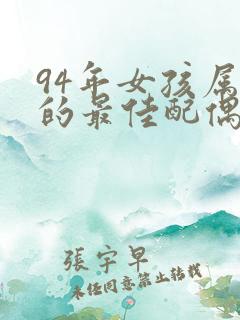 94年女孩属
的最佳配偶
张宇早
未经同意禁止转载